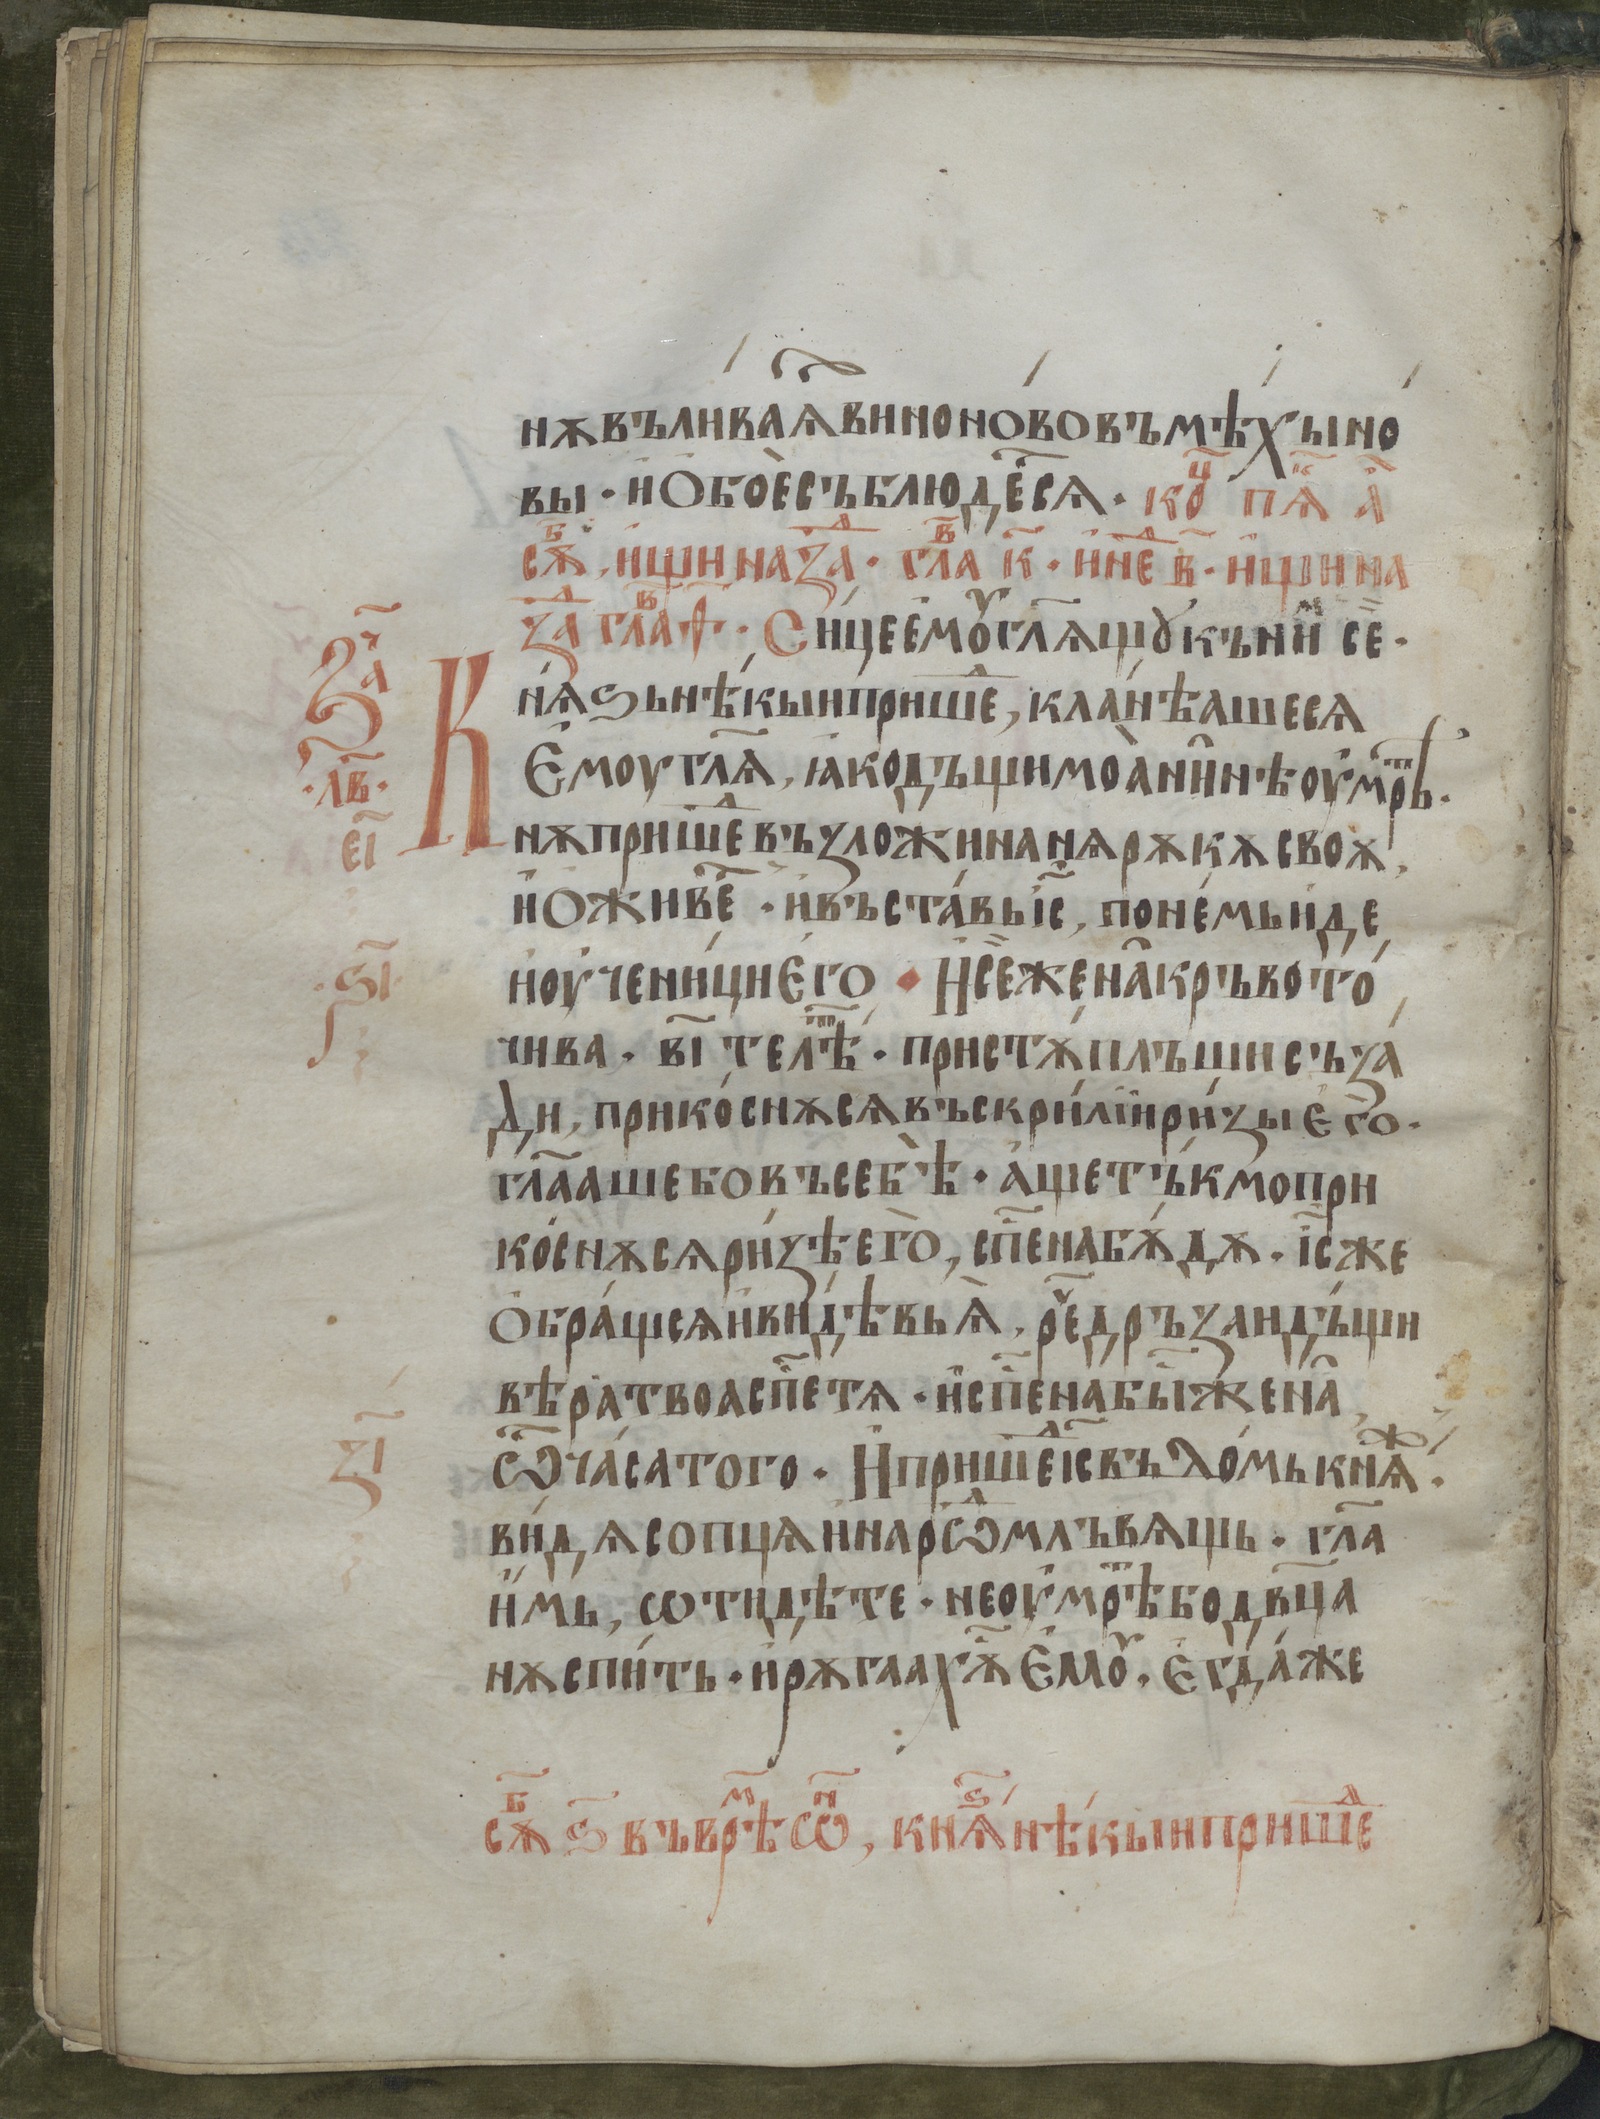 нѫ въливаѧ вино ново въ мѣхы но
вы · и҆ обоѐ съблюде́сѧ · ко̑ц пѧ̑к а҃
сѫ̑б , ищи на за̑ · гл҃ва к҃ · и҆ нѐд в҃ · ищи на
за̑ч гл҃ва ѳ҃ · Си́це е҆моу̑ гл҃ѧщꙋ къ ни̑м се̏ ·
Кнѧѕь нѣ́кыи прише̑д , кланѣ́ашесѧ
Е҆моу гл҃ѧ , ꙗко дъщи моа̀ нн҃ѣ оу҆мрѣ̑т ·
нѫ прише̑д възложи на нѧ рѫкѫ своѫ ,
и҆ оживе̑т · и҆ въста́вь і҆с҃ , по не́мь и҆де
и҆ оу҆чени́ци е҆го · И҆ се̏ жена̀ кръвото́
чива · в҃і те лѣ̑т · пристѫ́пльши съ за́
ди , прико́снѫсѧ въскри́лїи ри́зы е҆го̀ ·
гл҃ааше бо въ себѣ̀ · а҆ще тъ́кмо при
ко́снѫсѧ ри́зѣ е҆го̀ , сп҃сена бѫ́дѫ · і҆с҃ же
ѡбра́щсѧ и҆ ви́дѣвь ѧ̀ , ре̑ч дръзаи дъ́щи
вѣ́ра твоа сп҃се тѧ · и҆ сп҃сена бы̑с жена̀ ,
ѿ ча́са того · И҆ прише̑д і҆с҃ въ до́мь кнѧ̑ж ·
ви́дѧ сопцѧ и҆ наро̑д млъвѧщь · гл҃а
и҆̀мь , ѡти́дѣте · не оу҆мрѣ̑т бо дв҃ца
нѫ спи́ть · и҆ рѫгаахѫ̑с е҆моу̑ · Е҆гда́ же
сѫ̑б ѕ҃ въ врѣ̑м ѡ̑н , кнѧ̑ѕ нѣ́кыи прише̑д
За̑ч
· л҃в ·
е҃і
· ѕ҃і ·
з҃і